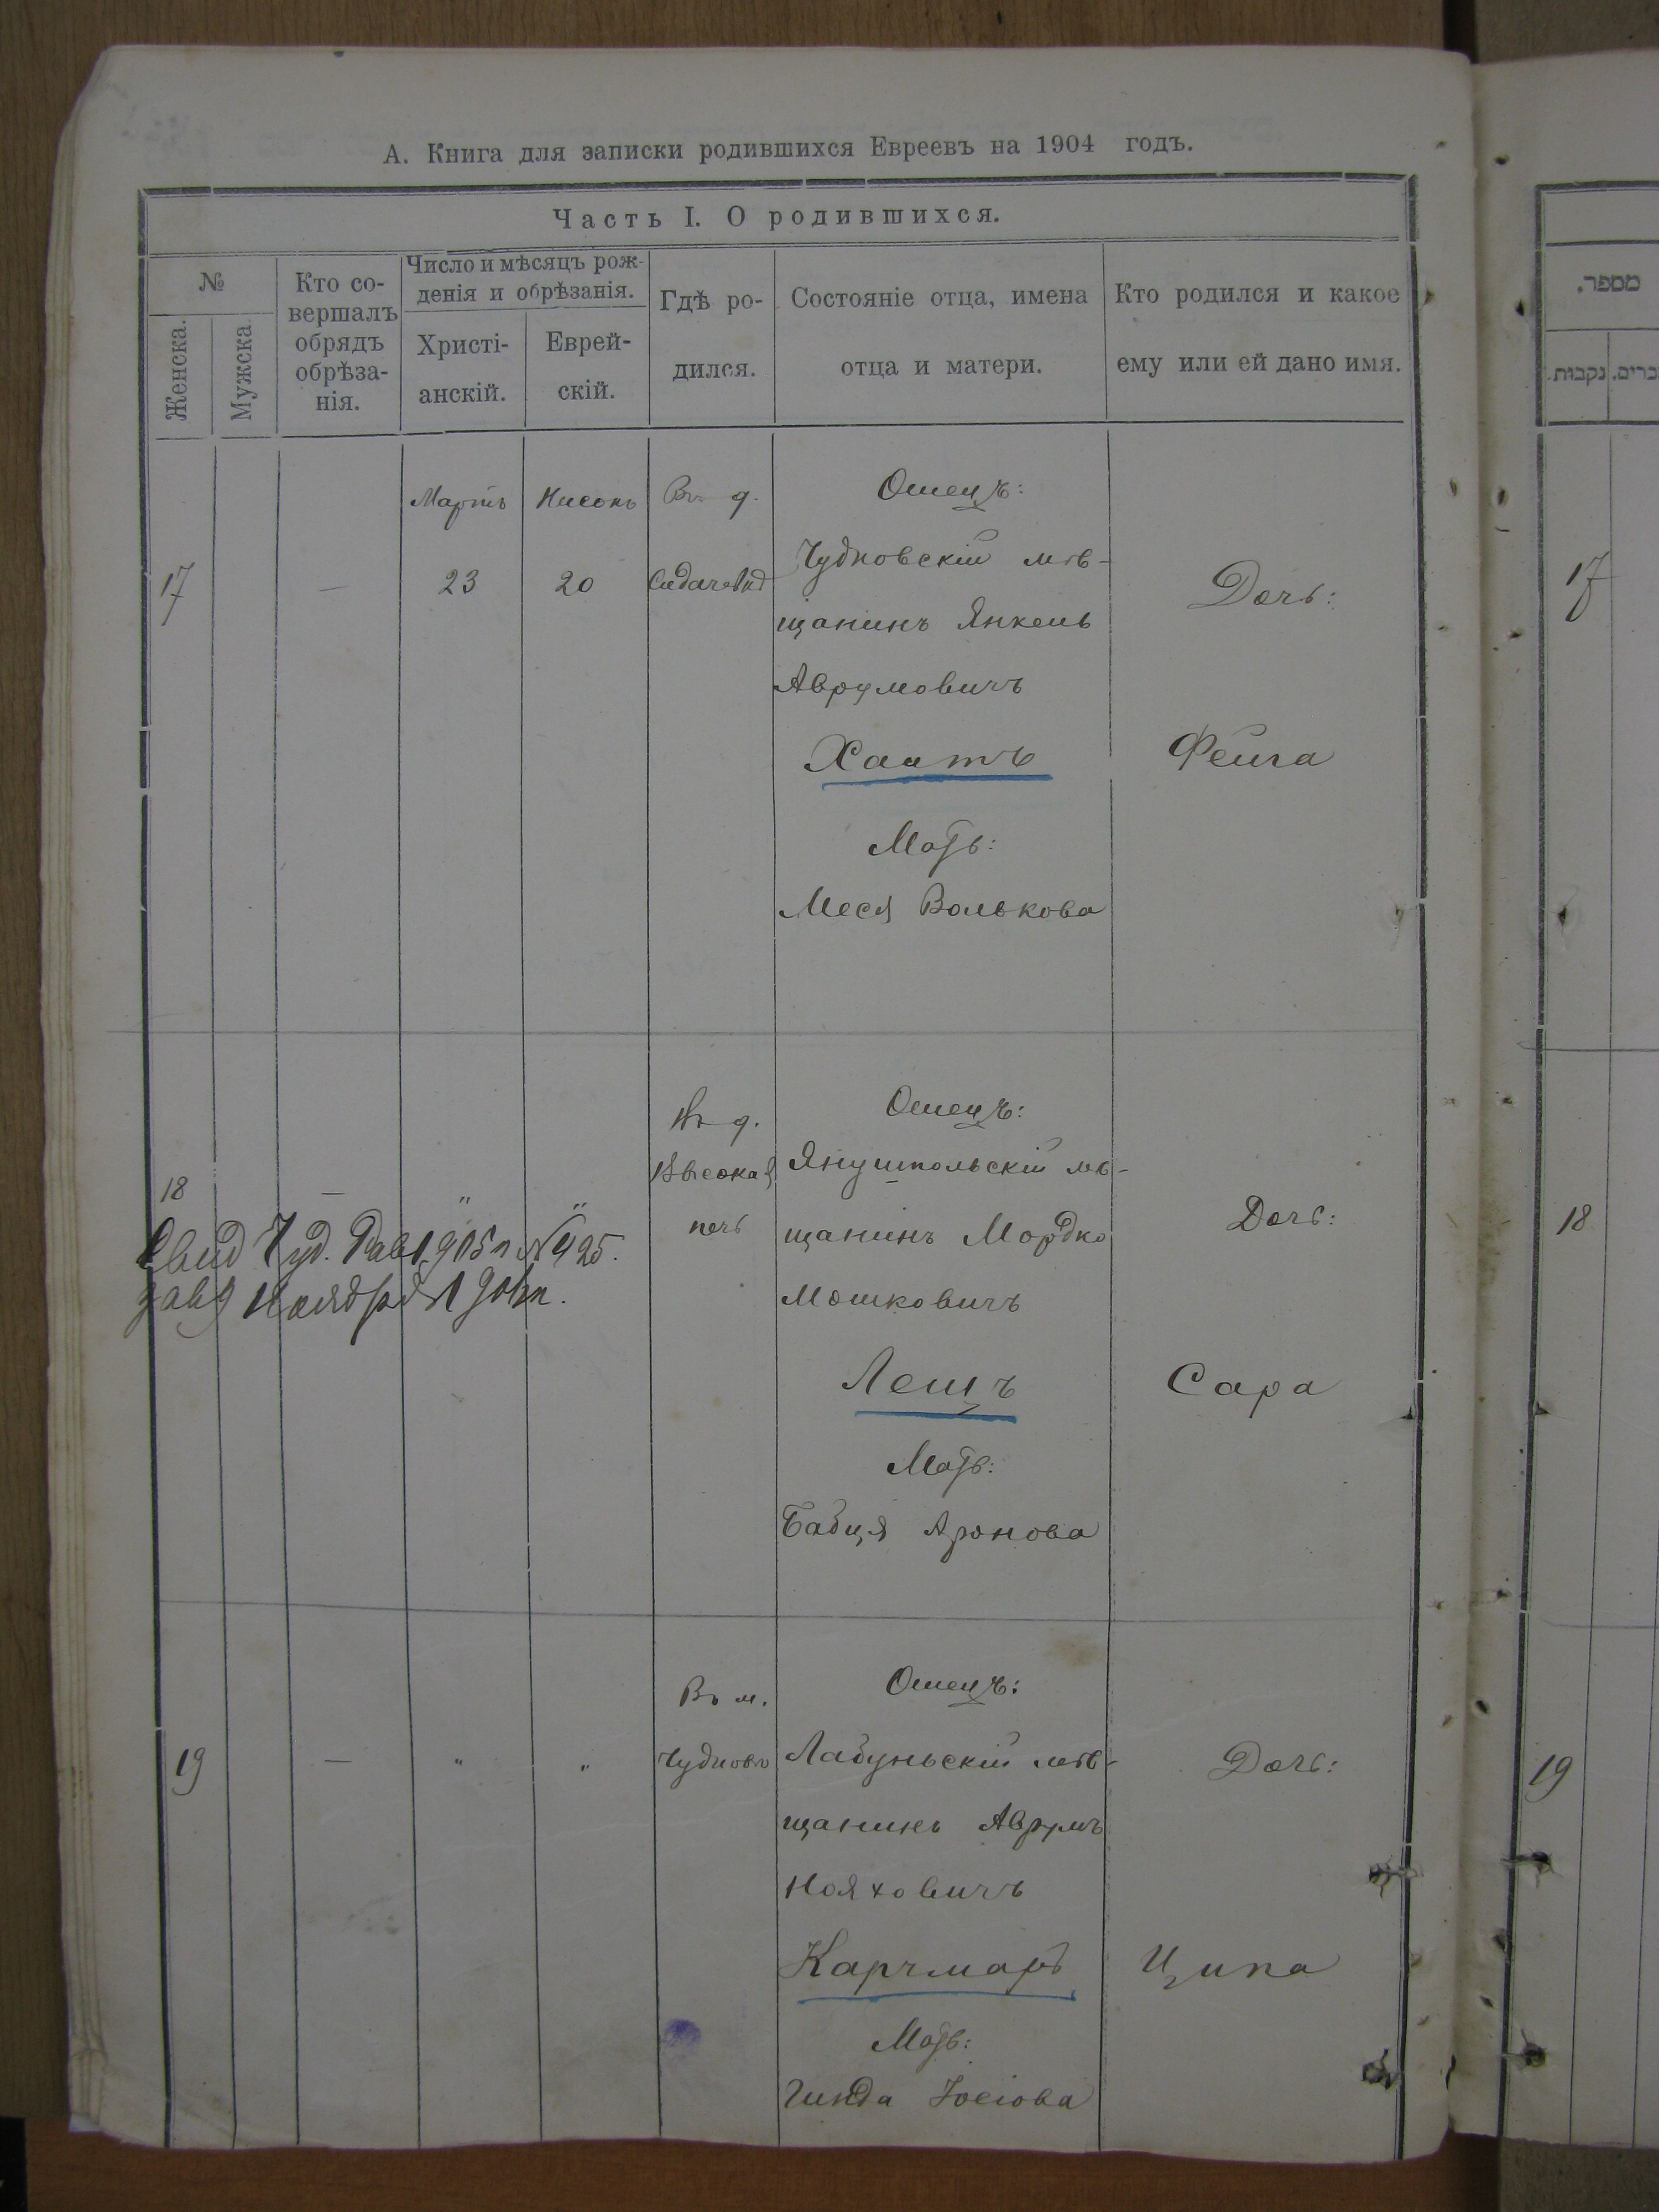 А. Книга для записки родившихся Евреевъ на 1904 годъ.
Часть I. О родившихся.
№
Женска.
Мужска.
Кто со-
вершалъ
обрядъ
обрѣза-
нія.
Число и мѣсяцъ рож-
денія и обрѣзанія.
Христі-
анскій.
Еврей-
скій.
Гдѣ ро-
дился.
Состояніе отца, имена
отца и матери.
Кто родился и какое
ему или ей дано имя.
מספר.
נקבות.
17
—
Мартъ
23
Нисонъ
20
Въ д.
Отецъ:
Чудновскій мѣ-
щанинъ Янкель
Аврумовичъ
Хаитъ
Мать:
Меся Волькова
Дочь:
Фейга
17
18
—
"
"
Въ д.
Высокая
печь
Отецъ:
Янушпольскій мѣ-
щанинъ Мордко
Мошковичъ
Лещъ
Мать:
Бабця Аронова
Дочь:
Сара
18
19
—
"
"
Въ м.
Чудновъ
Отецъ:
Лабуньскій мѣ-
щанинъ Аврумъ
Нояховичъ
Карчмарь
Мать:
Гинда Іосіова
Дочь:
Ципа
19